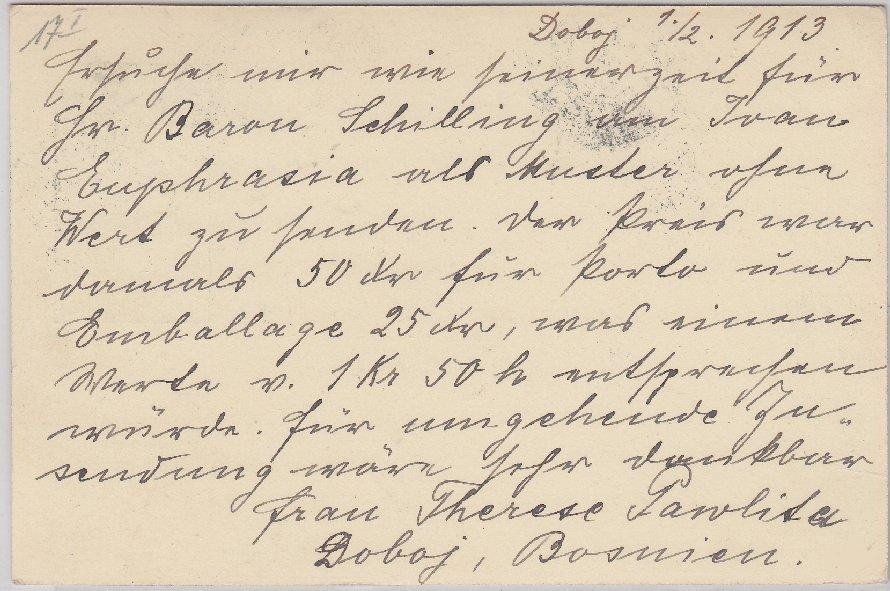 17 I
Doboj 1./2. 1913
Ersuche mir wie seinerzeit für
Hr. Baron Schilling am Ivan
Euphrasia als Muster ohne
Wert zu senden. Der Preis war
damals 50 Kr für Porto und
Emballage 25 Kr, was einem
Werte v. 1 Kr 50 h entsprechen
würde. Für umgehende Zu„
sendung wäre sehr dankbar
Frau Therese Pawlita
Doboj, Bosnien.